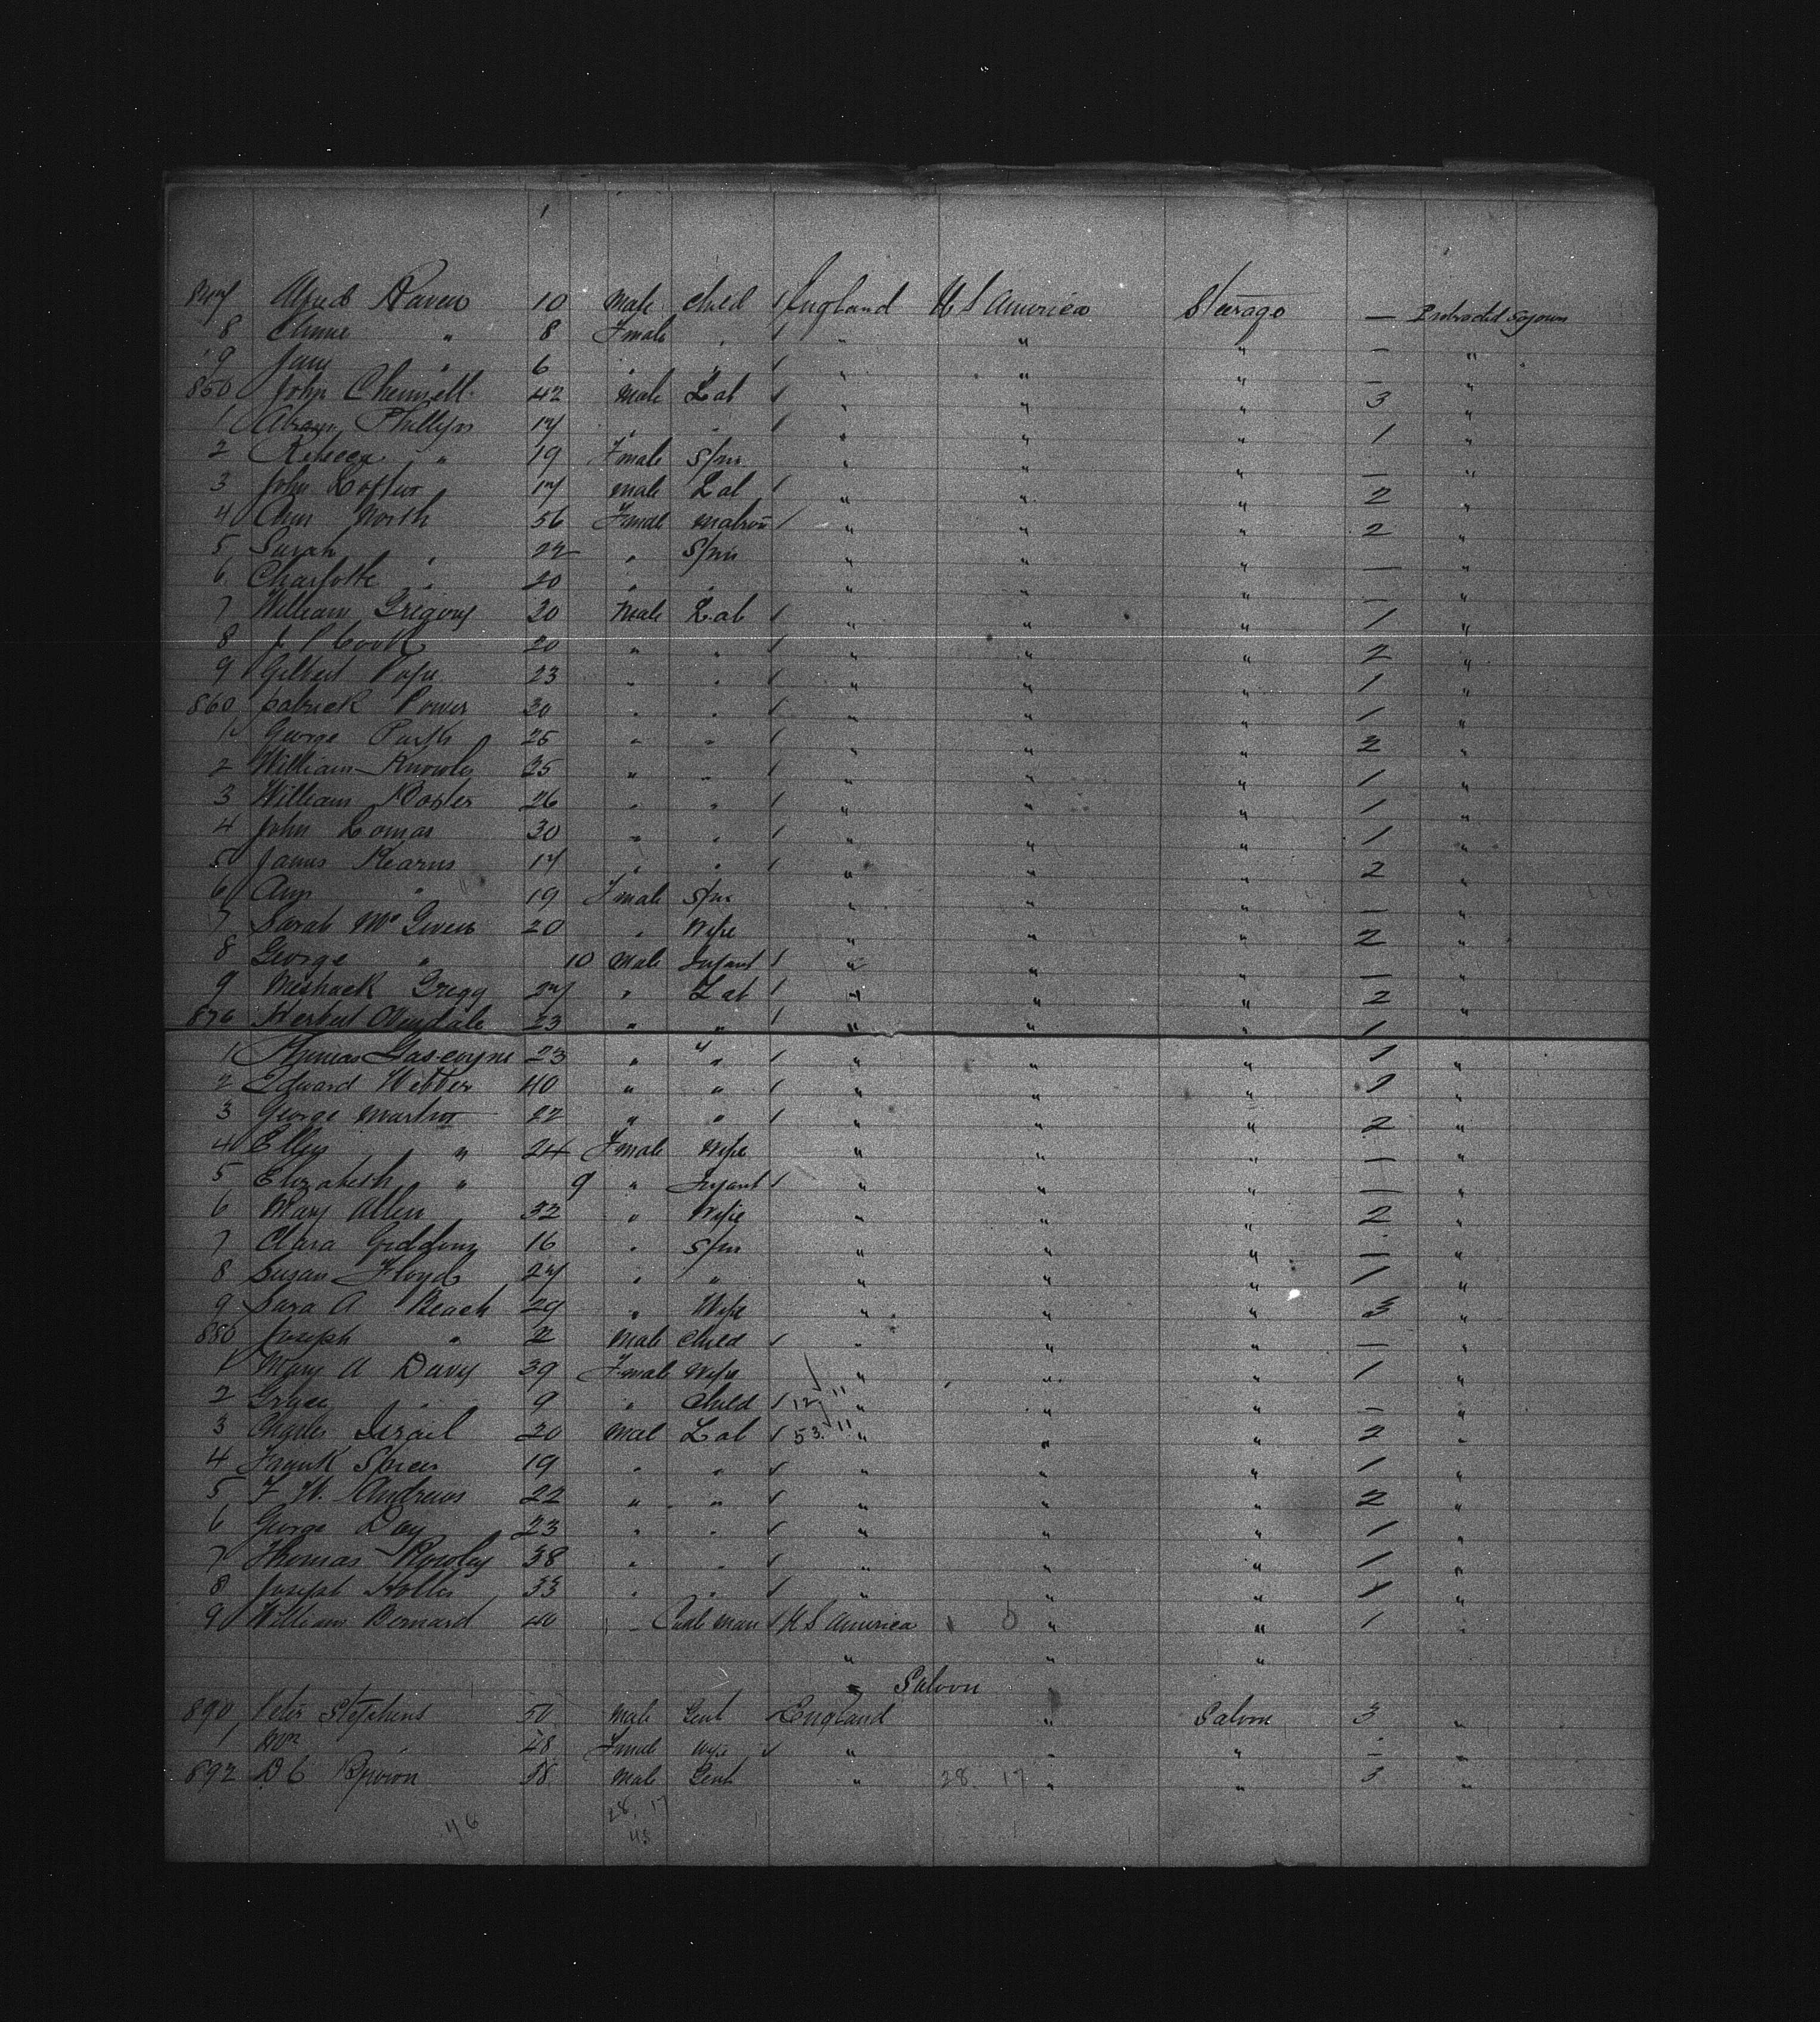 1
847 Alfred Raven 10 Male Child / England U S America Steerage — Protracted Sojourn
8 Annie " 8 Female " / " " " — "
9 Jane " 6 " " / " " " — "
850 John Chennell 42 Male Lab / " " " 3 "
1 Abram Phillips 17 " " / " " " 1 "
2 Rebecca " 19 Female Spin " " " — "
3 John Loftus 17 Male Lab / " " " 2 "
4 Ann North 56 Female Matron / " " " 2 "
5 Sarah " 22 " Spin " " " — "
6 Charlotte " 20 " " " " " — "
7 William Gregory 20 Male Lab / " " " 1 "
8 J P Cook 20 " " / " " " 2 "
9 Gilbert Pope 23 " " / " " " 1 "
860 Patrick Power 30 " " / " " " 1 "
1 George 25 " " / " " " 2 "
2 William Knowles 35 " " / " " " 1 "
3 William 26 " " / " " " 1 "
4 John Lomas 30 " " / " " " 1 "
5 James Kearns 17 " " / " " " 2 "
6 Ann " 19 Female Spin " " " — "
7 Sarah Mc Givern 20 " Wife " " " 2 "
8 George " 10 Male Infant / " " " — "
9 Meshack Gregg 27 " Lab / " " " 2 "
870 Herbert 23 " " / " " " 1 "
1 Thomas Gascoyne 23 " " / " " " 1 "
2 Edward Webber 40 " " / " " " 1 "
3 George Martin 22 " " / " " " 2 "
4 Ellen " 24 Female Wife " " " — "
5 Elizabeth " 9 " Infant / " " " — "
6 Mary Allen 32 " Wife " " " 2 "
7 Clara Giddins 16 " Spin " " " — "
8 Susan Floyd 27 " " " " " 1 "
9 Sara A Beach 29 " Wife " " " 3 "
880 Joseph " 2 Male Child / " " " — "
1 Mary A Davy 39 Female Wife " " " 1 "
2 Grace " 9 " Child / 12 11 " " " — "
3 Charles Israil 20 Mal Lab / 53 11 " " " 2 "
4 Frank Spicer 19 " " / " " " 1 "
5 F W. Andrews 22 " " / " " " 2 "
6 George Day 23 " " / " " " 1 "
7 Thomas Rowley 38 " " / " " " 1 "
8 Joseph Hollis 33 " " / " " " 1 "
9 William Bernard 40 " Cattle man / U S America " " 1 "
" " "
" Saloon
890 Peter Stephens 50 Male Gent England " Saloon 3 "
1 Mrs " 48 Female Wife / " " " — "
892 D C 58 Male Gent " 28. 17 " " 3 "
28. 17
46 45